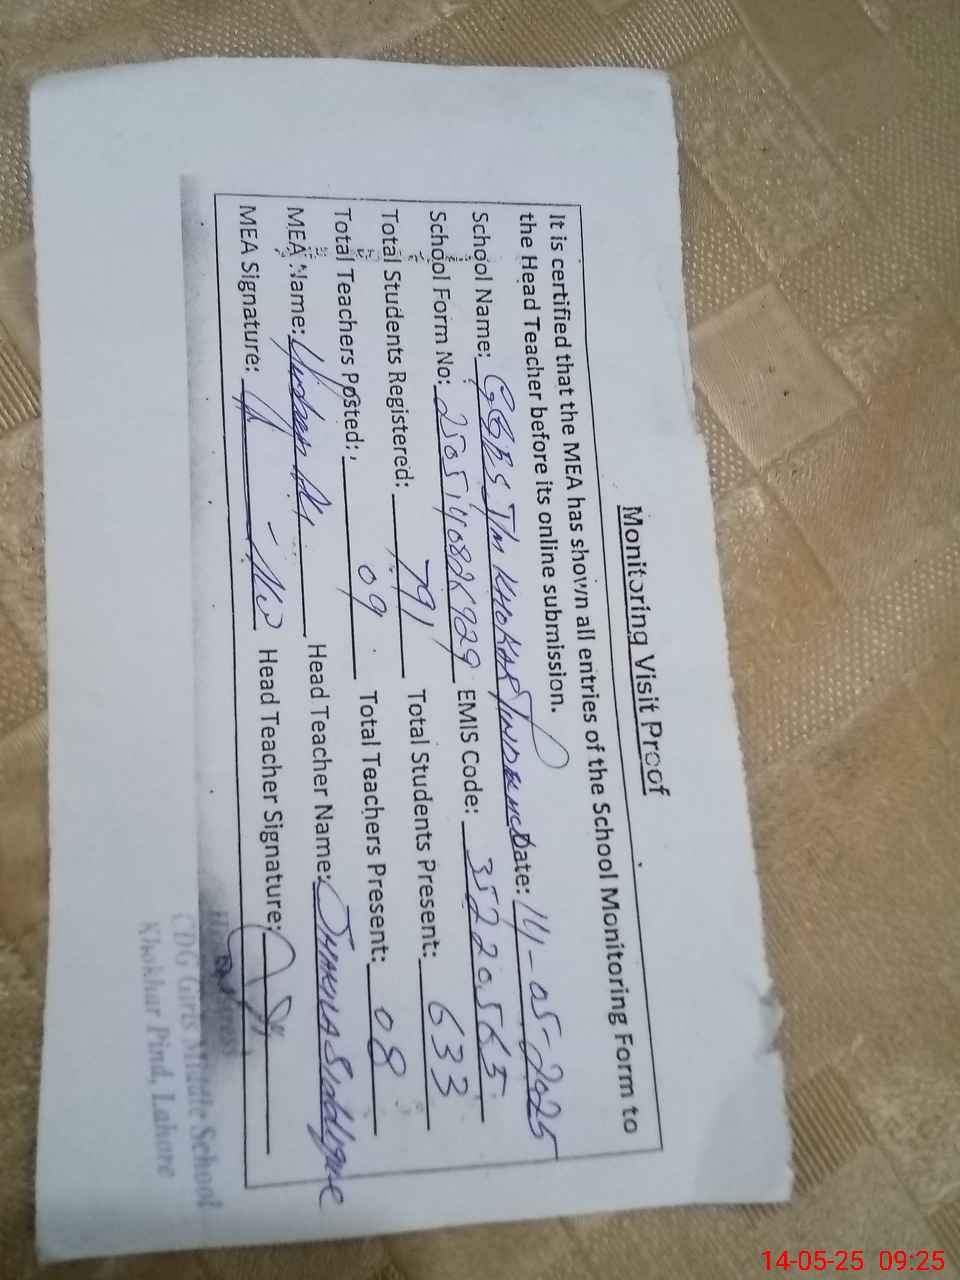 Monitoring Visit Proof
It is certified that the MEA has shown all entries of the School Monitoring Form to
the Head Teacher before its online submission.
School Name: KHOKAR Date: 14-05-2025
School Form No: EMIS Code: 35220565
Total Students Registered: 791 Total Students Present: 633
Total Teachers Posted: 09 Total Teachers Present: 08
MEA Name: Head Teacher Name: Siddique
MEA Signature: Head Teacher Signature:
CDG Girls Middle School
Khokhar Pind, Lahore
14-05-25 09:25